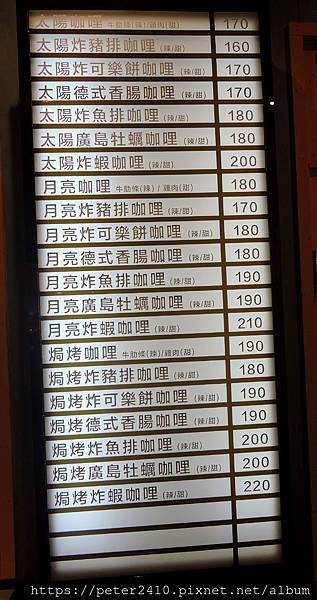 太陽咖哩 牛肋條(辣)/雞肉(甜) 170
太陽炸豬排咖哩 (辣/甜) 160
太陽炸可樂餅咖哩 (辣/甜) 170
太陽德式香腸咖哩 (辣/甜) 170
太陽炸魚排咖哩 (辣/甜) 180
太陽廣島牡蠣咖哩 (辣/甜) 180
太陽炸蝦咖哩 (辣/甜) 200
月亮咖哩 牛肋條(辣) / 雞肉(甜) 180
月亮炸豬排咖哩 (辣/甜) 170
月亮炸可樂餅咖哩 (辣/甜) 180
月亮德式香腸咖哩 (辣/甜) 180
月亮炸魚排咖哩 (辣/甜) 190
月亮廣島牡蠣咖哩 (辣/甜) 190
月亮炸蝦咖哩 (辣/甜) 210
焗烤咖哩 牛肋條(辣)/雞肉(甜) 190
焗烤炸豬排咖哩 (辣/甜) 180
焗烤炸可樂餅咖哩 (辣/甜) 190
焗烤德式香腸咖哩 (辣/甜) 190
焗烤炸魚排咖哩 (辣/甜) 200
焗烤廣島牡蠣咖哩 (辣/甜) 200
焗烤炸蝦咖哩 (辣/甜) 220
https://peter2410.pixnet.net/album